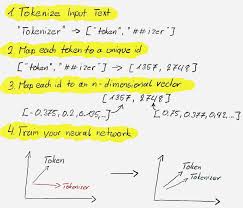 1. Tokenize Input Text
"Tokenizer" → ["token", "##izer"]
2. Map each token to a unique id
["token", "##izer"] → [1357, 2748]
3. Map each id to an n-dimensional vector
[1357, 2748]
[-0.375, 0.2, 0.105,...] [0.75, 0.377, 0.42, ...]
4. Train your neural network
Token
Tokenizer
Token
Tokenizer